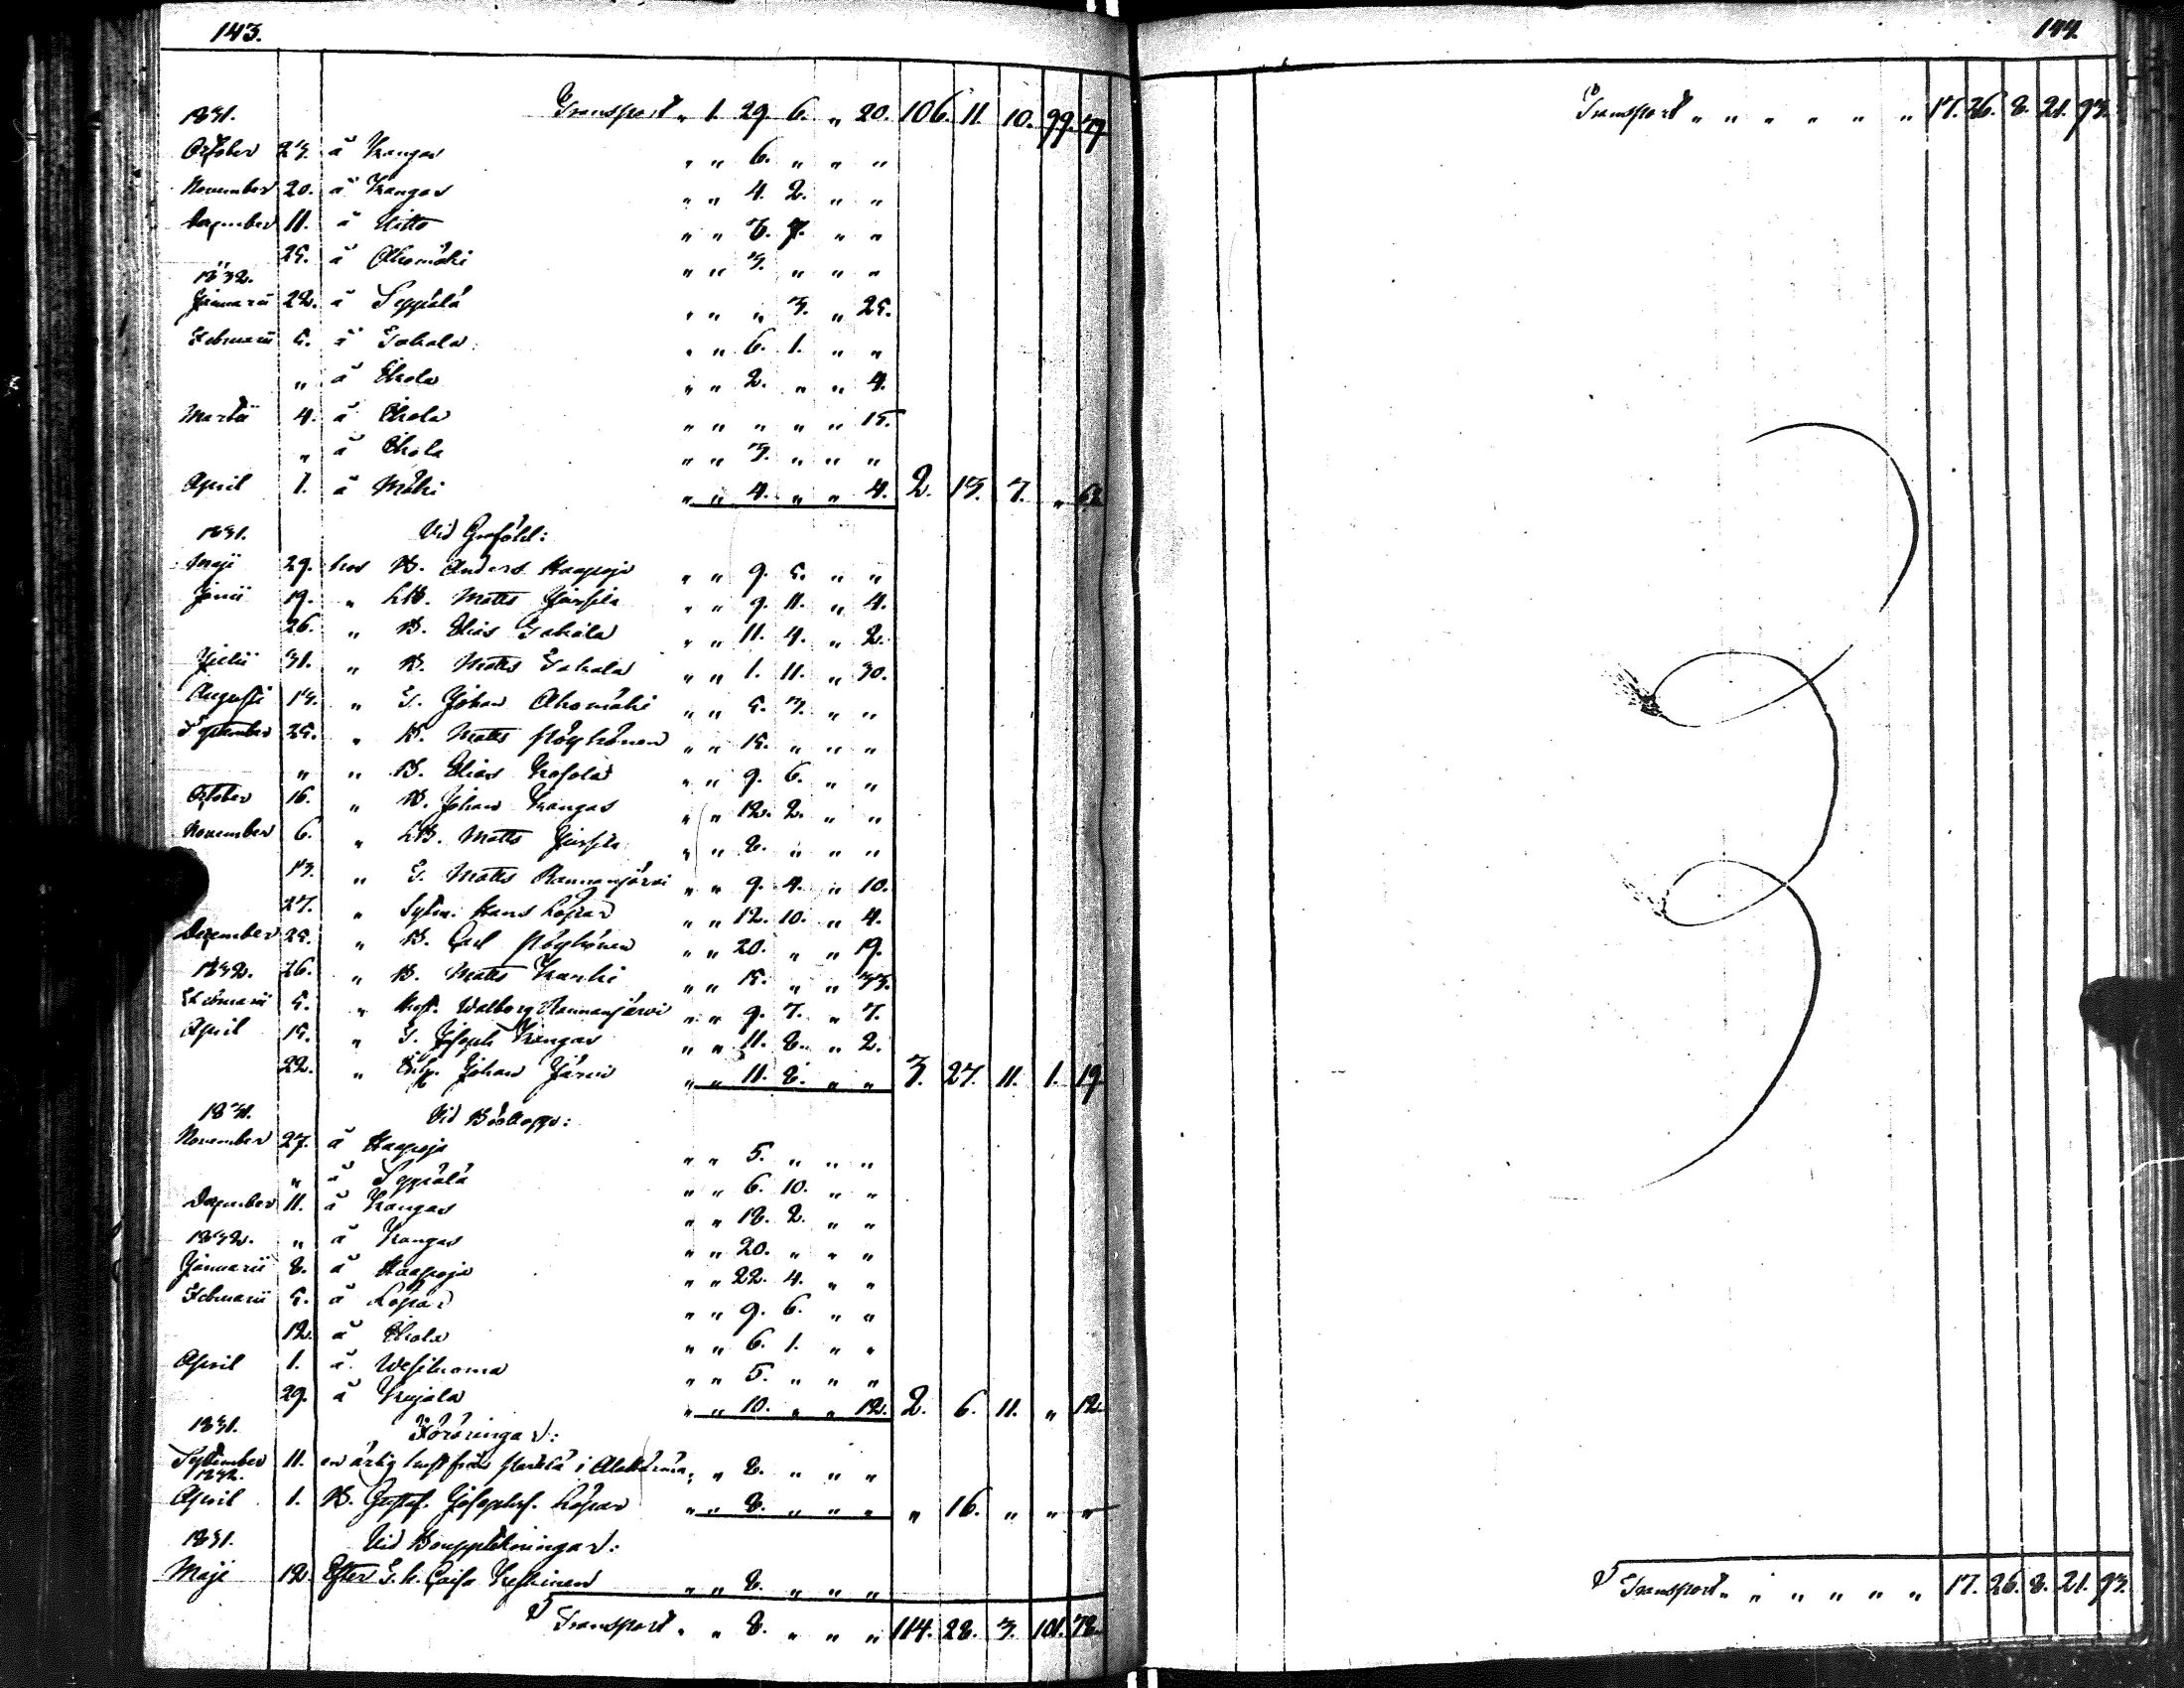 143.
Transport „ 1. 29. 6. „ 20. 106. 11. 10. 99. 79
1831.
October 23. å Krangas „ „ 6. „ „ „
November 20. å Krangas „ „ 4. 2. „ „
December 11. å „ „ 8. 7. „ „
„ 25. å Ahomäki „ „ 3. „ „ „
1832.
Januarii 22. å Seppälä „ „ „ 3. „ 25.
Februarii 5. å Takala „ „ 6. 1. „ „
„ å Ekola „ „ 2. „ „ 4.
Martii 4. å Ekola „ „ „ „ „ 15.
„ å Ekola „ „ 3. „ „ „
April 1. å Mäki „ „ 4. „ „ 4. 2. 13. 7. „
1831. Vid Grafööl:
Maji 29. hos B. Anders Haapoja „ „ 9. 5. „ „
Junii 19. „ LB. Matts „ „ 9. 11. „ 4.
26. „ B. Elias Takala „ „ 11. 4. „ 2.
Julii 31. „ B. Matts Takala „ „ 1. 11. „ 30.
Augusti 14. „ T. Johan Ahomäki „ „ 5. 3. „ „
September 25. „ B. Matts Pöyhönen „ „ 15. „ „ „
„ „ B. Elias „ „ 9. 6. „ „
October 16. „ B. Johan Krangas „ „ 12. 2. „ „
November 6. „ LB. Matts „ „ 8. „ „ „
13. „ T. Matts Rannanjärvi „ „ 9. 4. „ 10.
27. „ Sytn. Hans Löpar „ „ 12. 10. „ 4.
December 25. „ B. Carl Pöyhönen „ „ 20. „ „ 19.
1832. 26. „ B. Matts „ „ 15. „ „ 33.
Februarii 5. „ Walborg Rannanjärvi „ „ 9. 7. „ 7.
April 15. „ T. Joseph Krangas „ „ 11. 8. „ 2.
22. „ Johan Järvi „ „ 11. 8. „ „ 3. 27. 11. 1. 19.
1831. Vid Bröllopp:
November 27. å Haapoja „ „ 5. „ „ „
„ å Seppälä „ „ 6. 10. „ „
December 11. å Krangas „ „ 18. 2. „ „
1832. „ å Krangas „ „ 20. „ „ „
Januarii 8. å Haapoja „ „ 22. 4. „ „
Februarii 5. å Löpar „ „ 9. 6. „ „
12. å Ekola „ „ 6. 1. „ „
April 1. å Wesiluoma „ „ 5. „ „ „
29. å Krujala „ „ 10. „ „ 12. 2. 6. 11. „ 12
1831. Föräringar:
September 11. en ärlig från i Alahärmä „ „ 8. „ „ „
1832.
April 1. B. Gustaf Josephsf. Löpar „ „ 8. „ „ „ „ 16. „ „ „
1831. Vid Bouppteckningar:
Maji 12. Efter Caisa Keskinen „ „ 8. „ „ „
Transport „ „ 8. „ „ „ 114. 28. 3. 101. 78.
144
Transport „ „ „ „ „ „ 17. 26. 8. 21. 93.
Transport „ „ „ „ „ „ 17. 26. 8. 21. 93.